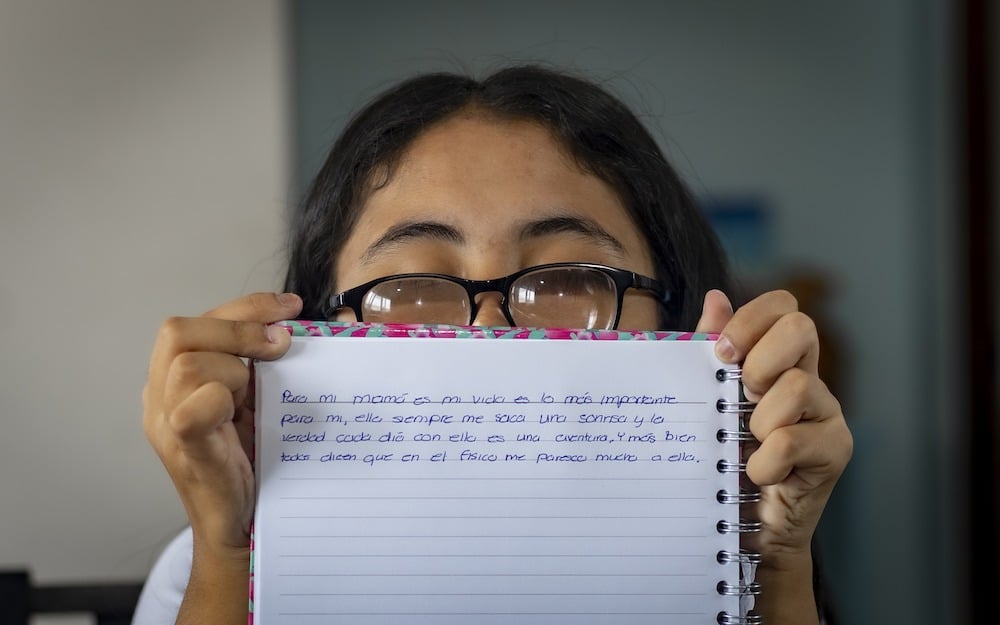 Para mi mamá es mi vida es lo más importante
para mi, ella siempre me saca una sonrisa y la
verdad cada día con ella es una aventura, Y más bien
todos dicen que en el fisico me paresco mucho a ella.